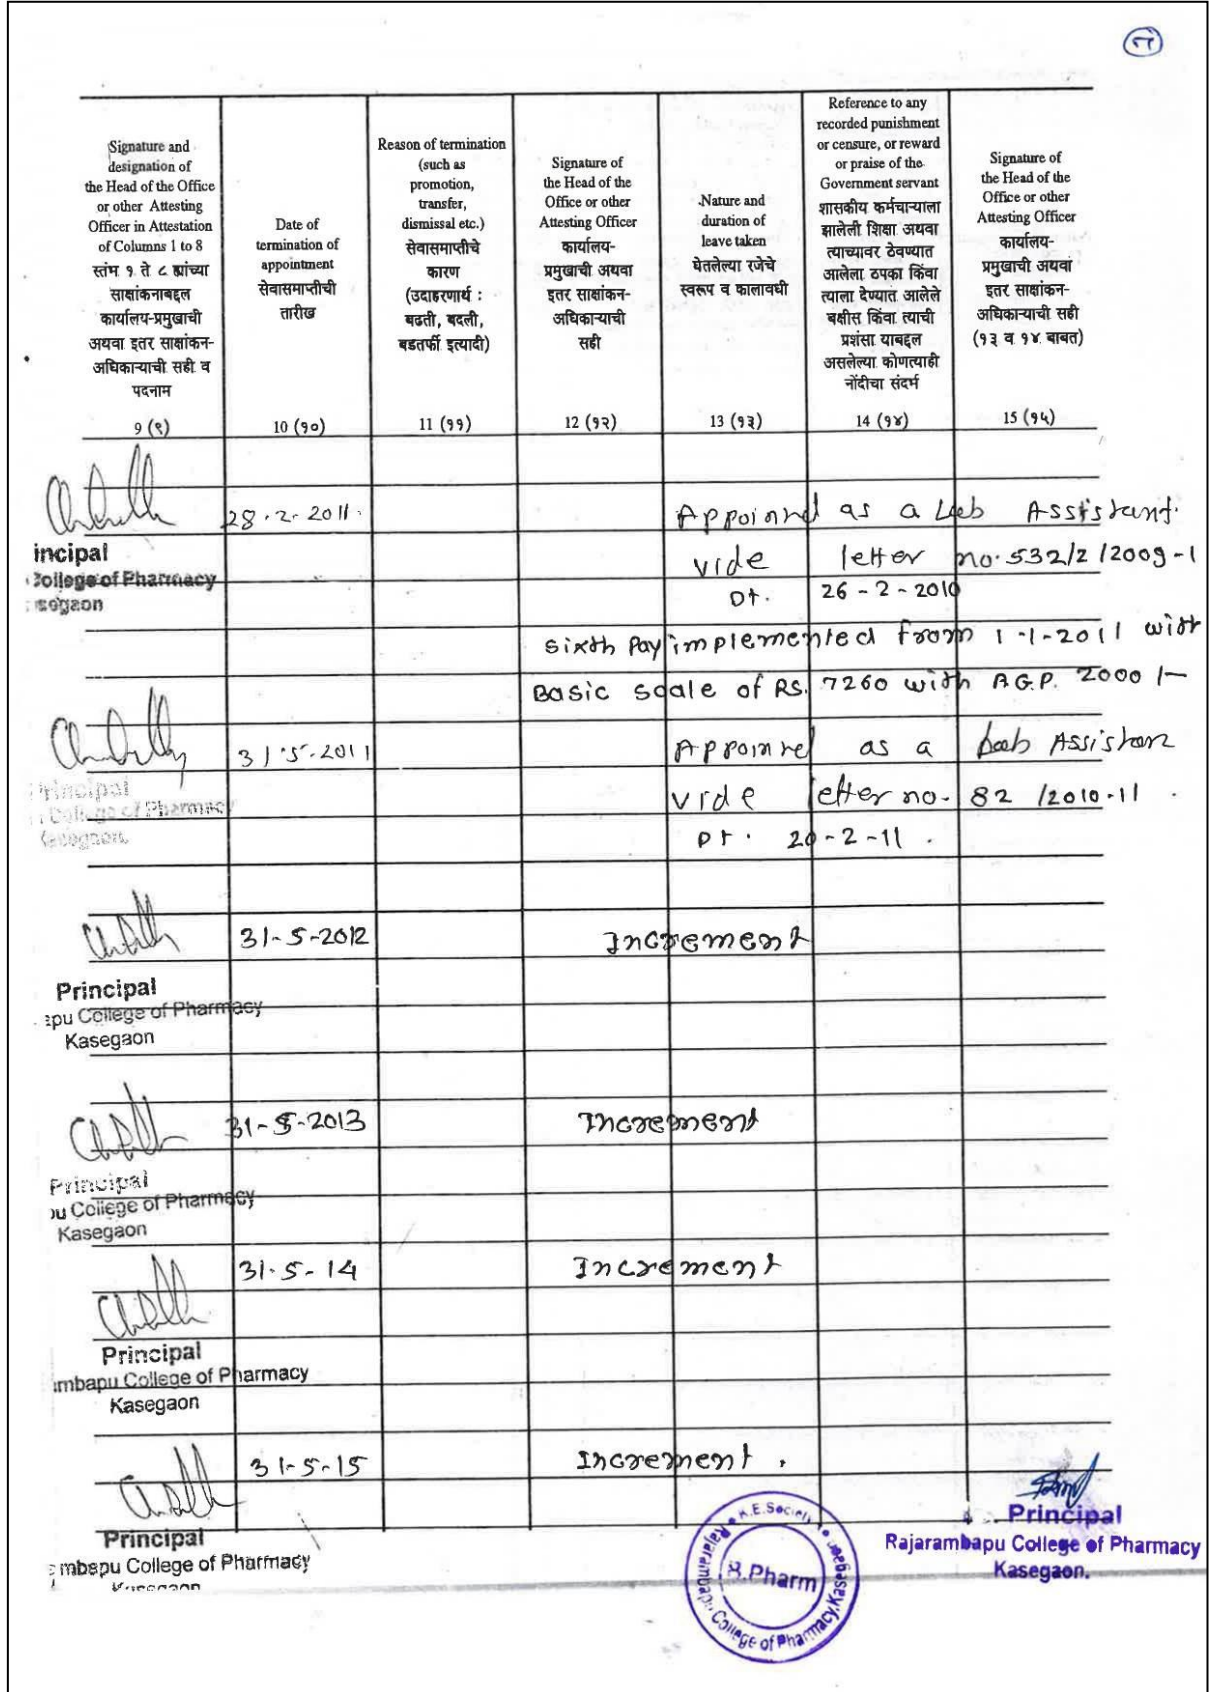 Signature and
designation of
the Head of the Office
or other Attesting
Officer in Attestation
of Columns 1 to 8
स्तंभ १ ते ८ ह्यांच्या
साक्षांकनाबद्दल
कार्यालय-प्रमुखाची
अथवा इतर साक्षांकन-
अधिकाऱ्याची सही व
पदनाम
9 (९)
Date of
termination of
appointment
सेवासमाप्तीची
तारीख
10 (१०)
Reason of termination
(such as
promotion,
transfer,
dismissal etc.)
सेवासमाप्तीचे
कारण
(उदाहरणार्थ :
बढती, बदली,
बडतर्फी इत्यादी)
11 (११)
Signature of
the Head of the
Office or other
Attesting Officer
कार्यालय-
प्रमुखाची अथवा
इतर साक्षांकन-
अधिकाऱ्याची
सही
12 (१२)
Nature and
duration of
leave taken
घेतलेल्या रजेचे
स्वरूप व कालावधी
13 (१३)
Reference to any
recorded punishment
or censure, or reward
or praise of the
Government servant
शासकीय कर्मचाऱ्याला
झालेली शिक्षा अथवा
त्याच्यावर ठेवण्यात
आलेला ठपका किंवा
त्याला देण्यात आलेले
बक्षीस किंवा त्याची
प्रशंसा याबद्दल
असलेल्या कोणत्याही
नोंदीचा संदर्भ
14 (१४)
Signature of
the Head of the
Office or other
Attesting Officer
कार्यालय-
प्रमुखाची अथवा
इतर साक्षांकन-
अधिकाऱ्याची सही
(१३ व १४ बाबत)
15 (१५)
28.2.2011. Appoinred as a Lab Assistant.
incipal
vide letter no. 532/2/2009-1
College of Pharmacy
Dt. 26-2-2010
segaon
Sixth Pay implemented from 1-1-2011 with
Basic scale of RS. 7260 with A.G.P. 2000/-
31.5.2011 Appoinred as a Lab Assistan
Principal
College of Pharmacy
vide letter no. 82/2010-11.
Kasegaon.
Dt. 20-2-11.
31-5-2012 Increment
Principal
apu College of Pharmacy
Kasegaon
31-5-2013 Increment
Principal
pu College of Pharmacy
Kasegaon
31.5-14 Increment
Principal
ambapu College of Pharmacy
Kasegaon
31-5-15 Increment.
Principal
mbapu College of Pharmacy
Kasegaon
K.E.Society's
Rajarambapu College of Pharmacy, Kasegaon
B.Pharm
Principal
Rajarambapu College of Pharmacy
Kasegaon.